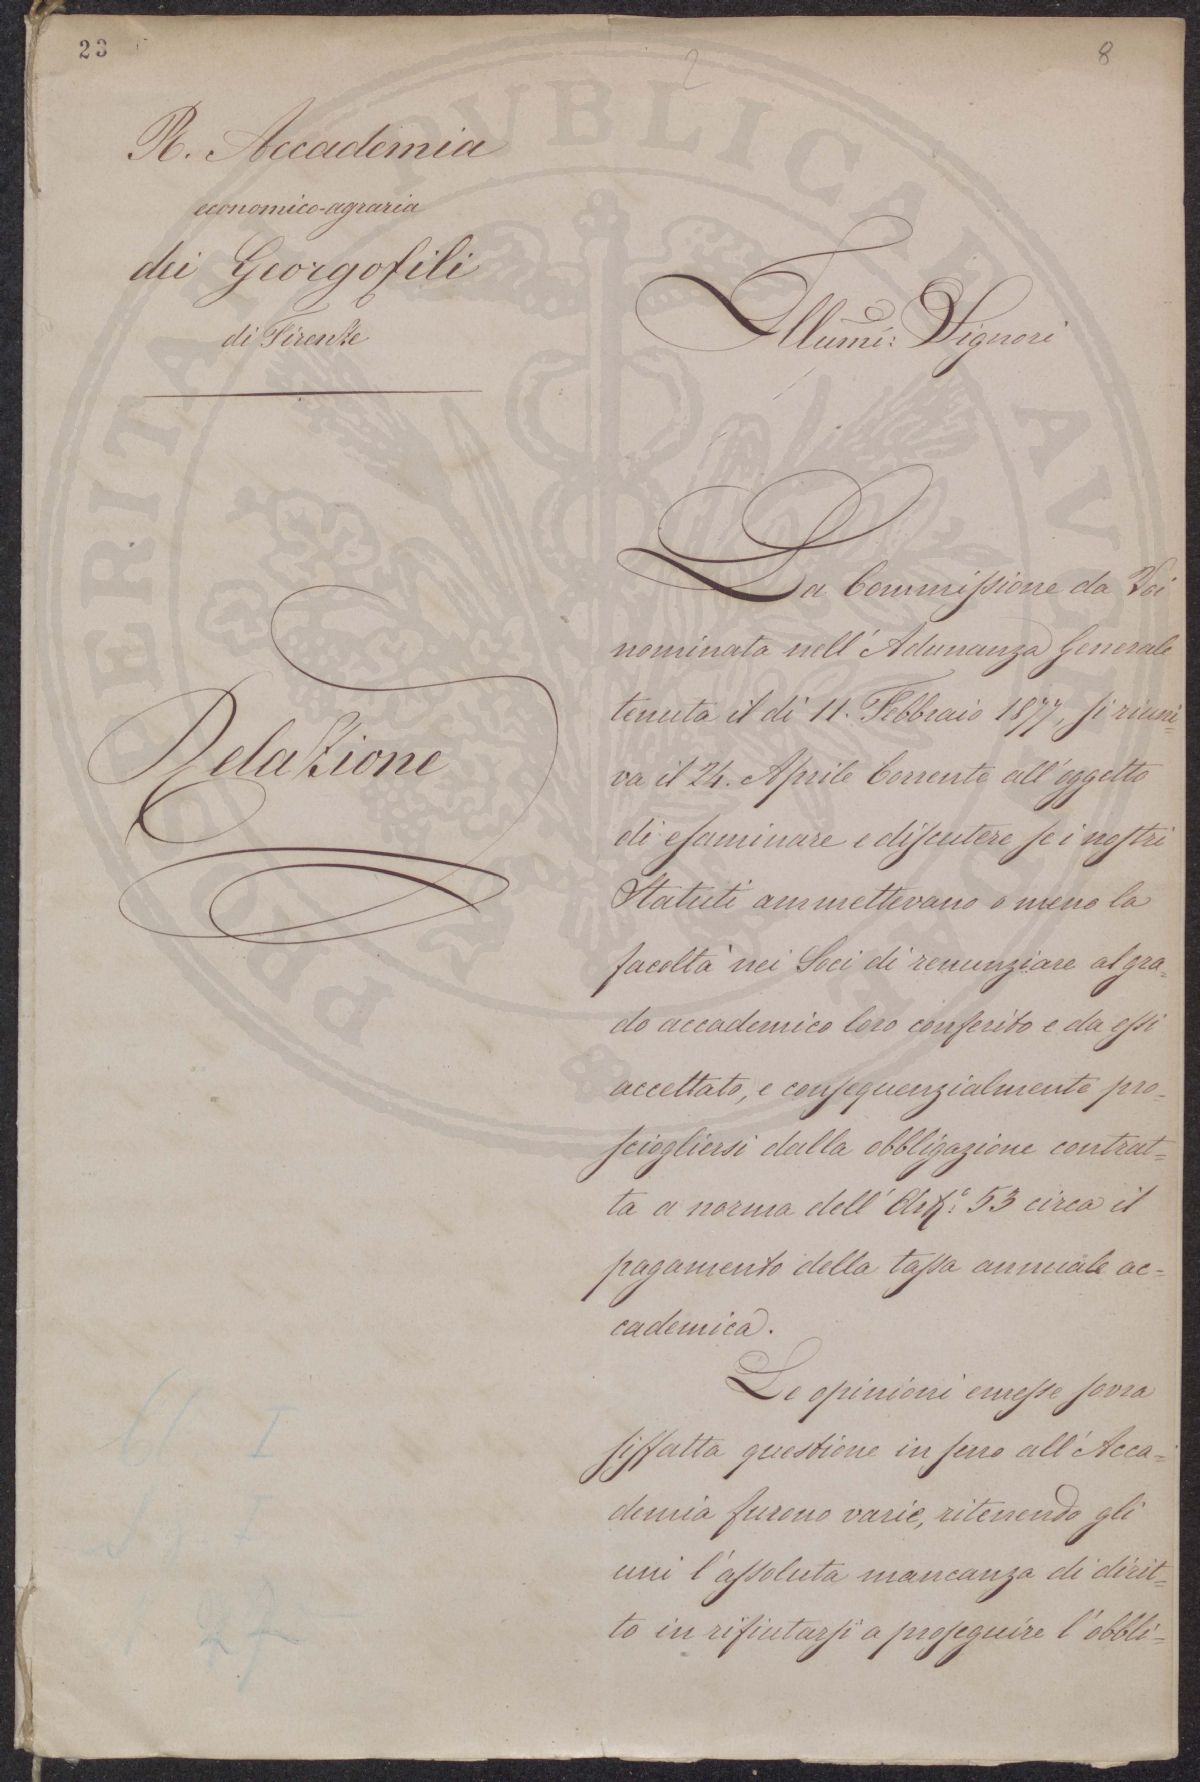 23
2
8
R. Accademia
economico-agraria
dei Georgofili
di Firenze
Illumi: Signori
Relazione
La Commissione da Voi
nominata nell'Adunanza Generale
tenuta il dì 11. Febbraio 1877, si riuni=
va il 24. Aprile Corrente all'oggetto
di esaminare e discutere se i nostri
Statuti ammettevano o meno la
facoltà nei Soci di renunziare al gra=
do accademico loro conferito e da essi
accettato, e consequenzialmente pro=
sciogliersi dalla obbligazione contrat=
ta a norma dell'Art:º 53 circa il
pagamento della tassa annuale ac=
cademica.
Le opinioni emesse sovra
siffatta questione in seno all'Acca=
demia furono varie, ritenendo gli
uni l'assoluta mancanza di dirit=
to in rifiutarsi a proseguire l'obbli=
PROSPERITATI PUBLICAE AUGENDAE